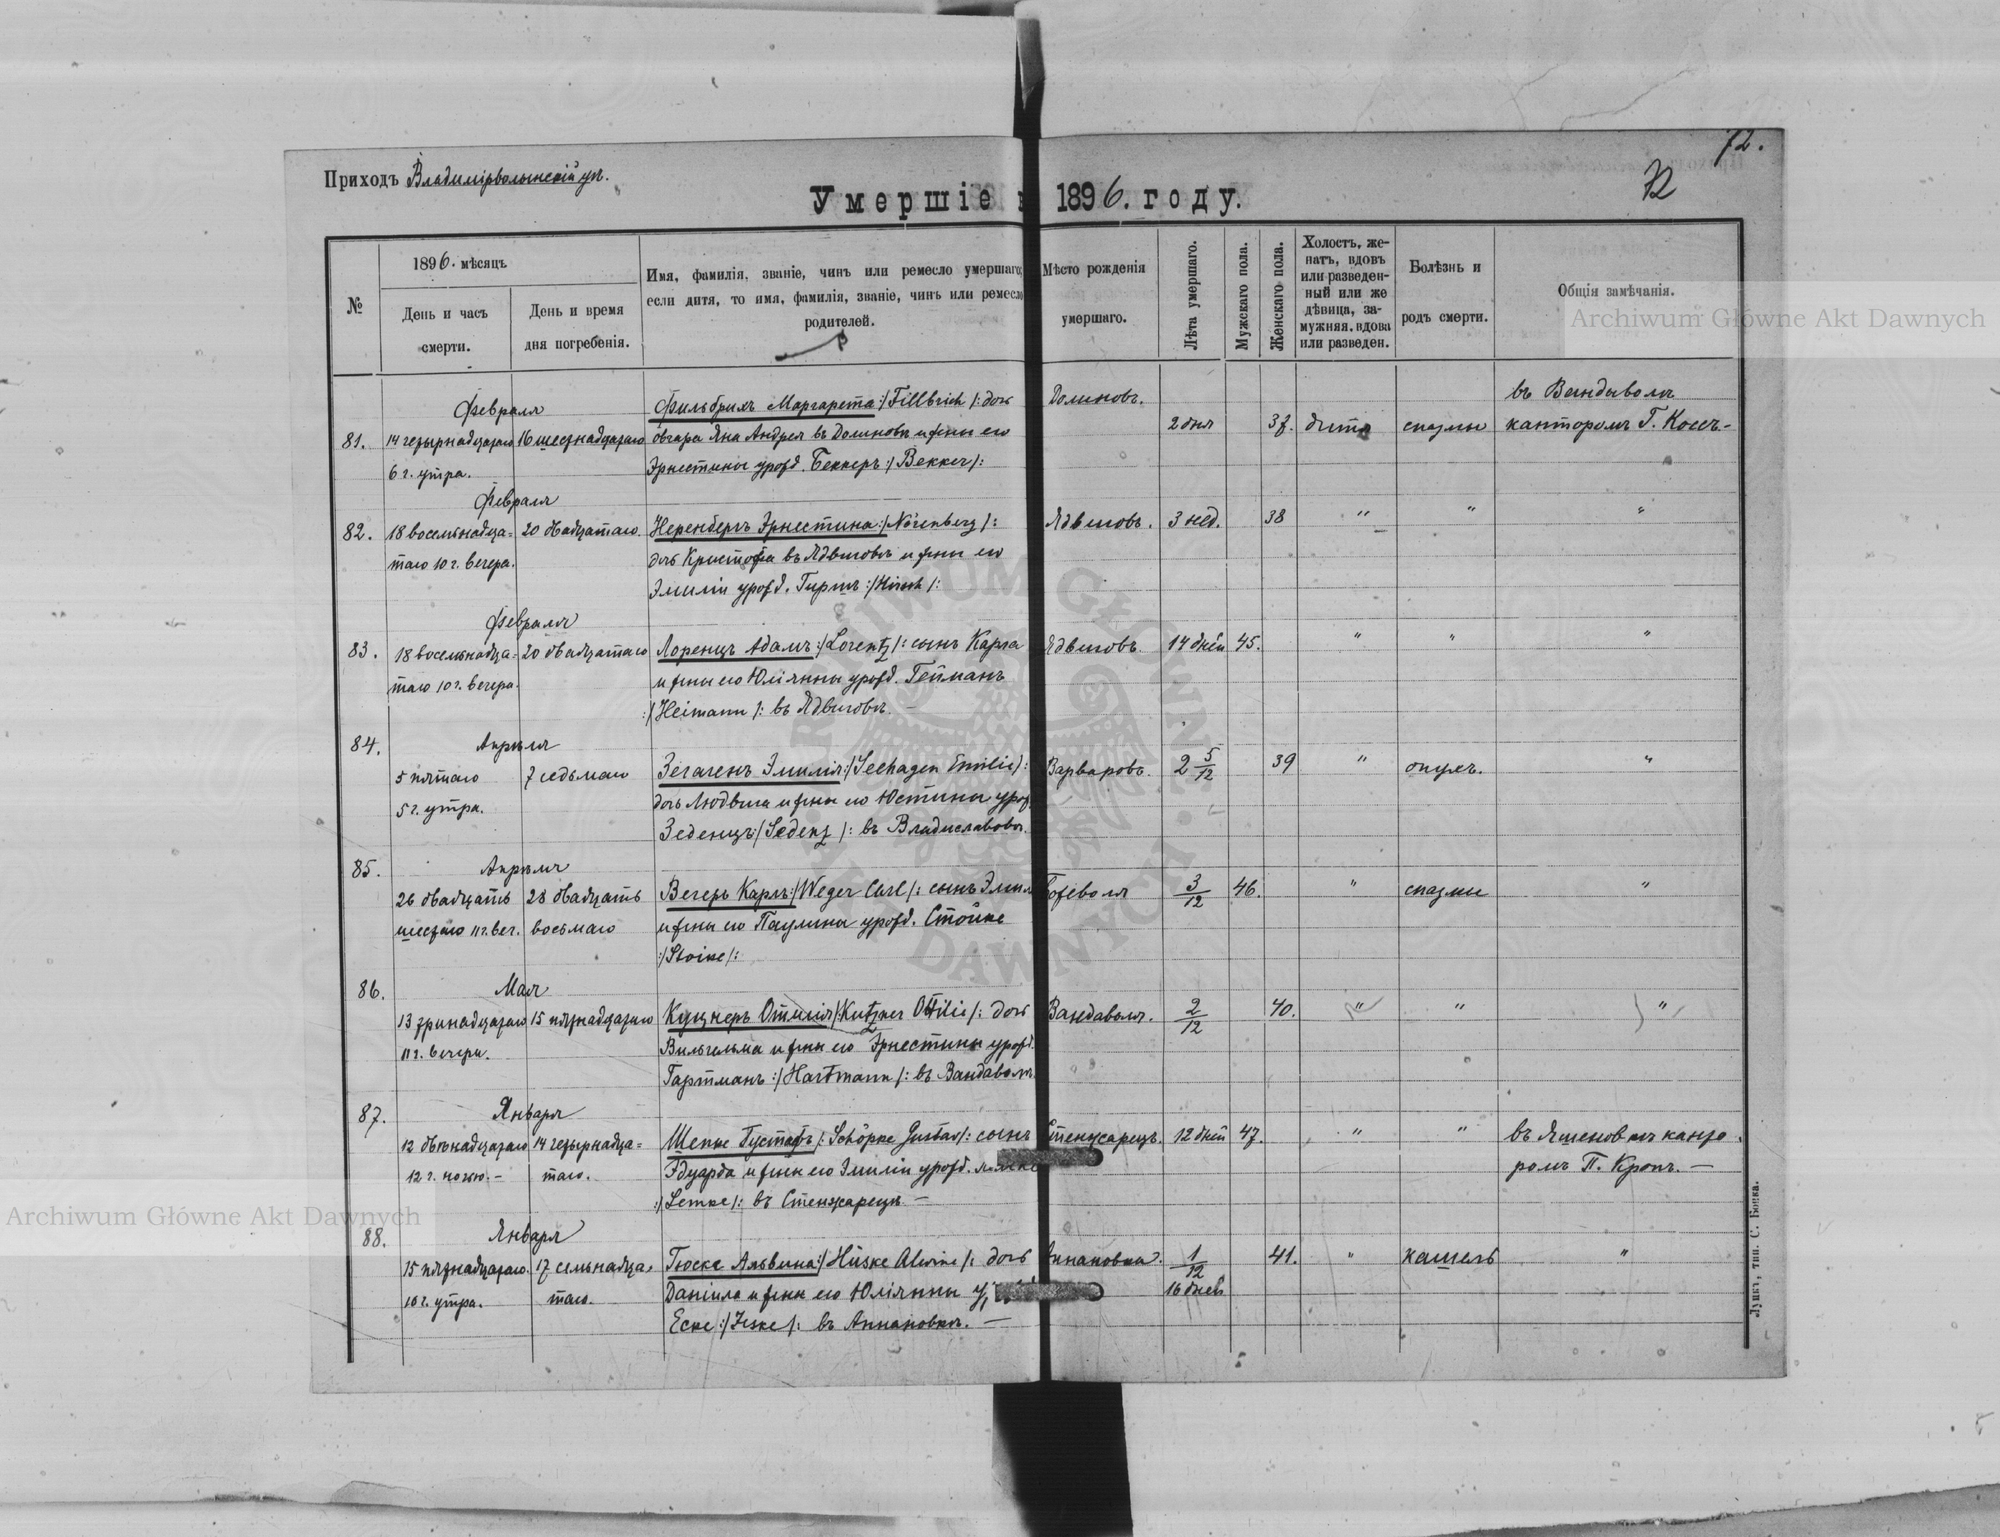 72.
72
Приходъ Владимірволынскій ул.
Умершіе 1896. году.
№
1896. мѣсяцъ
День и часъ
смерти.
День и время
дня погребенія.
Имя, фамилія, званіе, чинъ или ремесло умершаго;
если дитя, то имя, фамилія, званіе, чинъ или ремесло
родителей.
Мѣсто рожденія
умершаго.
Лѣта умершаго.
Мужскаго пола.
Женскаго пола.
Холостъ, же-
натъ, вдовъ
или разведен-
ный или же
дѣвица, за-
мужняя. вдова
или разведен.
Болѣзнь и
родъ смерти.
Общія замѣчанія.
Archiwum Główne Akt Dawnych
Февраля
81. 14 четырнадцатаго 16 шестнадцатаго
6 г. утра.
Фильбрихъ Маргарета :/Fillbrich/: дочь
овчара Яна Андрея въ Долиновѣ и жены его
Эрнестины урожд. Беккеръ :/Bekker/:
Долиновъ.
2 дня 37. дитя спазмы
въ Вандыволѣ
канторомъ Г. Коссъ-
Февраля
82. 18 восемьнадца= 20 двадцатаго
таго 10 г. вечера.
Неренбергъ Эрнестина :/Nörenberg/:
дочь Кристофа въ Ядвиговѣ и жены его
Эмиліи урожд. Гиршъ :/Hirsch/:
Ядвиговъ. 3 нед. 38 " " "
Февраля
83. 18 восемьнадца= 20 двадцатаго
таго 10 г. вечера.
Лоренцъ Адамъ :/Lorentz/: сынъ Карла
и жены его Юліянны урожд. Гейманъ
:/Heimann/: въ Ядвиговѣ. —
Ядвиговъ. 14 дней 45. " " "
84. Апрѣля
5 пятаго 7 седьмаго
5 г. утра.
Зегагенъ Эмилія :/Seehagen Emilie/:
дочь Людвига и жены его Юстины урож
Зеденцъ :/Sedenz/: въ Владиславовѣ.
Варваровъ. 2 5/12 39 " опухъ. "
85. Апрѣля
26 двадцать 28 двадцать
шестаго 11 г. веч. восьмаго
Вегеръ Карлъ :/Weger Carl/: сынъ Эмил
и жены его Паулины урожд. Стойке
:/Stoike/:
3/12 46. " спазмы "
86. Мая
13 тринадцатаго 15 пятнадцатаго
11 г. вечера.
Куцнеръ Отилія :/Kutzner Ottilie/: дочь
Вильгельма и жены его Эрнестины урожд.
Гартманъ :/Hartmann/: въ Вандаволѣ.
Вандаволя. 2/12 40. " " "
87. Января
12 двѣнадцатаго 14 четырнадца=
12 г. ночью. - таго.
Шепке Густавъ :/Schöpke Gustav/: сынъ
Эдуарда и жены его Эмиліи урожд.
:/Lemke/: въ Стенжарецѣ —
Стенжарецъ. 12 дней 47. " "
въ Яшеновкѣ канто
ромъ П. Кропъ. —
88. Января
15 пятнадцатаго. 17 семьнадца=
10 г. утра. таго.
Гюске Альвина :/Hüske Alwine/: дочь
Даніила и жены его Юліянны
Еске :/Jeske/: въ Аннановкѣ. —
Аннановка. 1/12 41. " кашель "
16 дней
Луцкъ, тип. С. Бонка.
Archiwum Główne Akt Dawnych